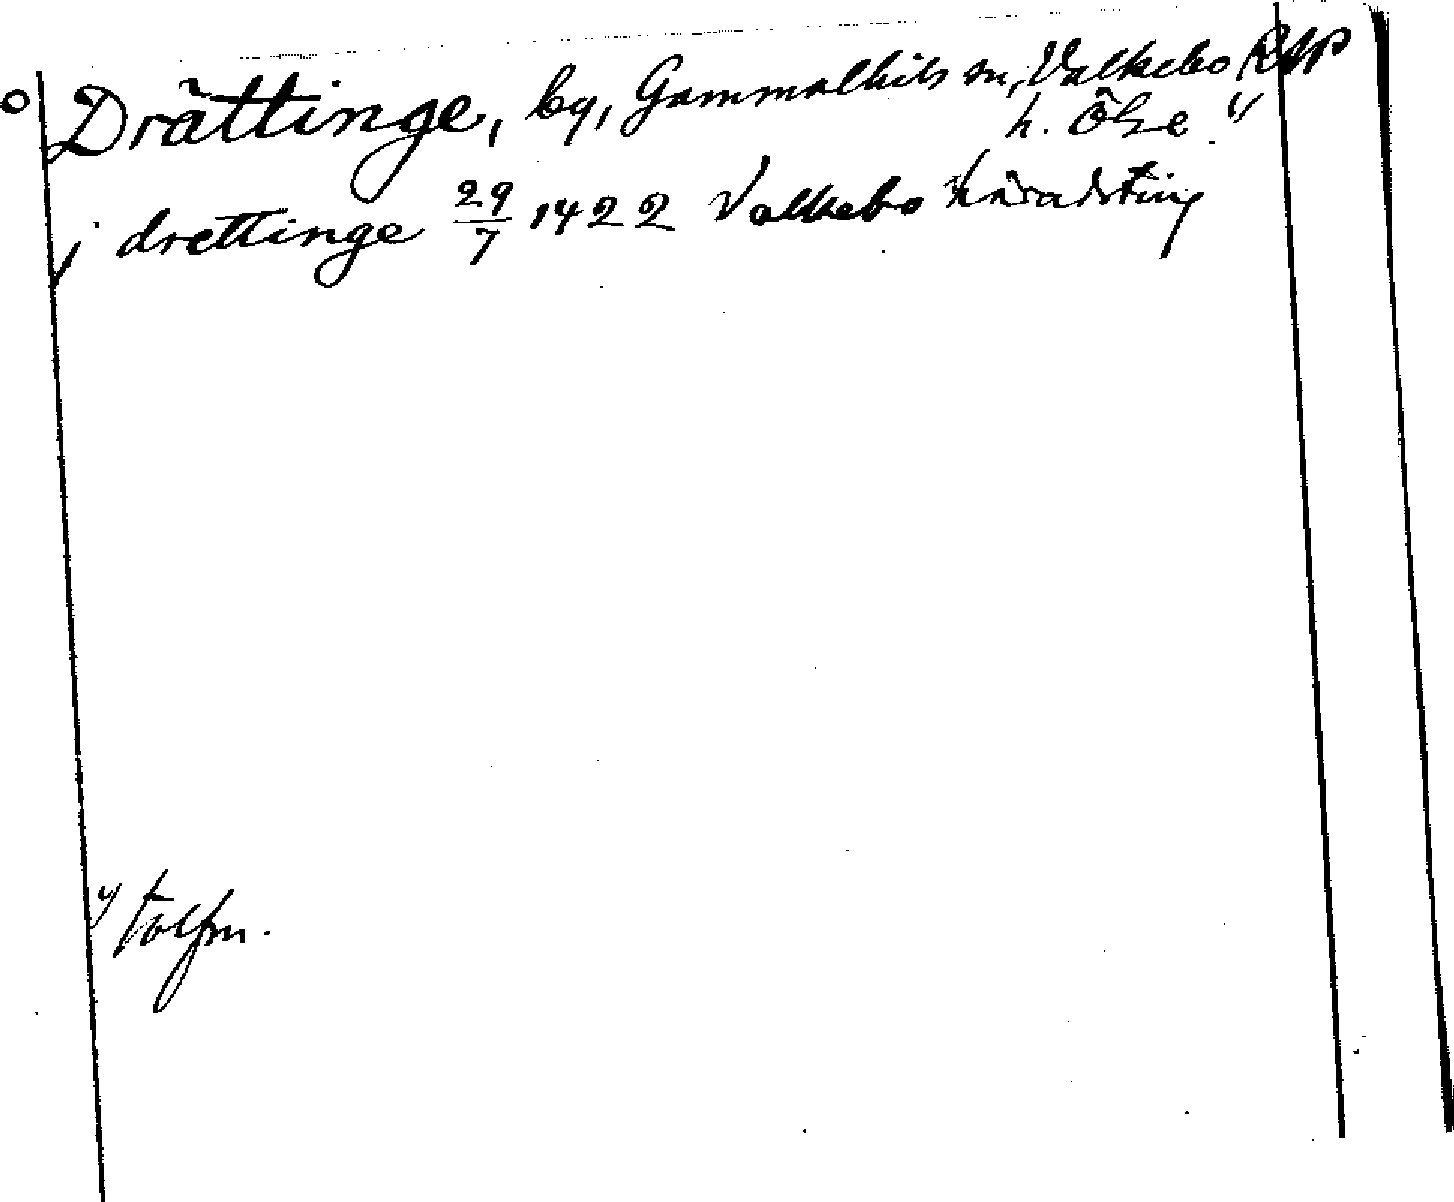 Drättinge, by, Gammalkils sn, Valkebo RAp
h. Ög.
i drettinge 29/7 1422 Valkebo häradsting
tolfm.